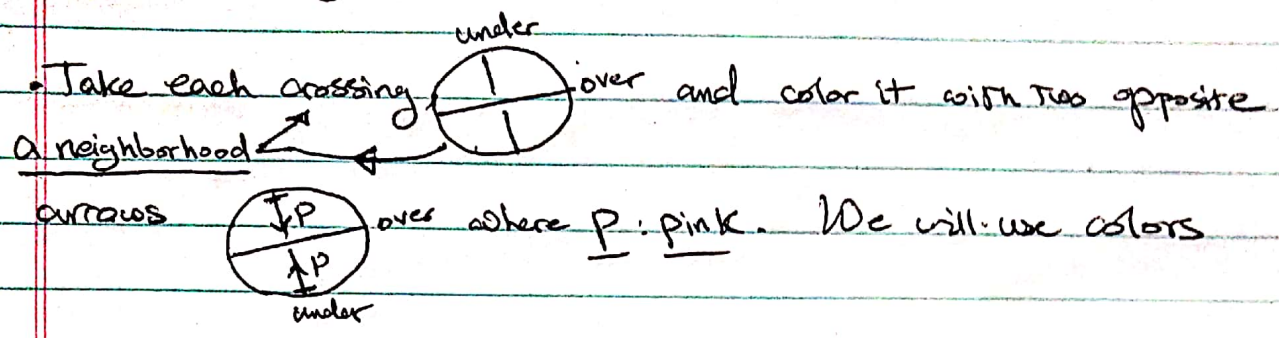 under
• Take each crossing over and color it with two opposite
a neighborhood
arrows P over where P : pink. We will use colors
P
under